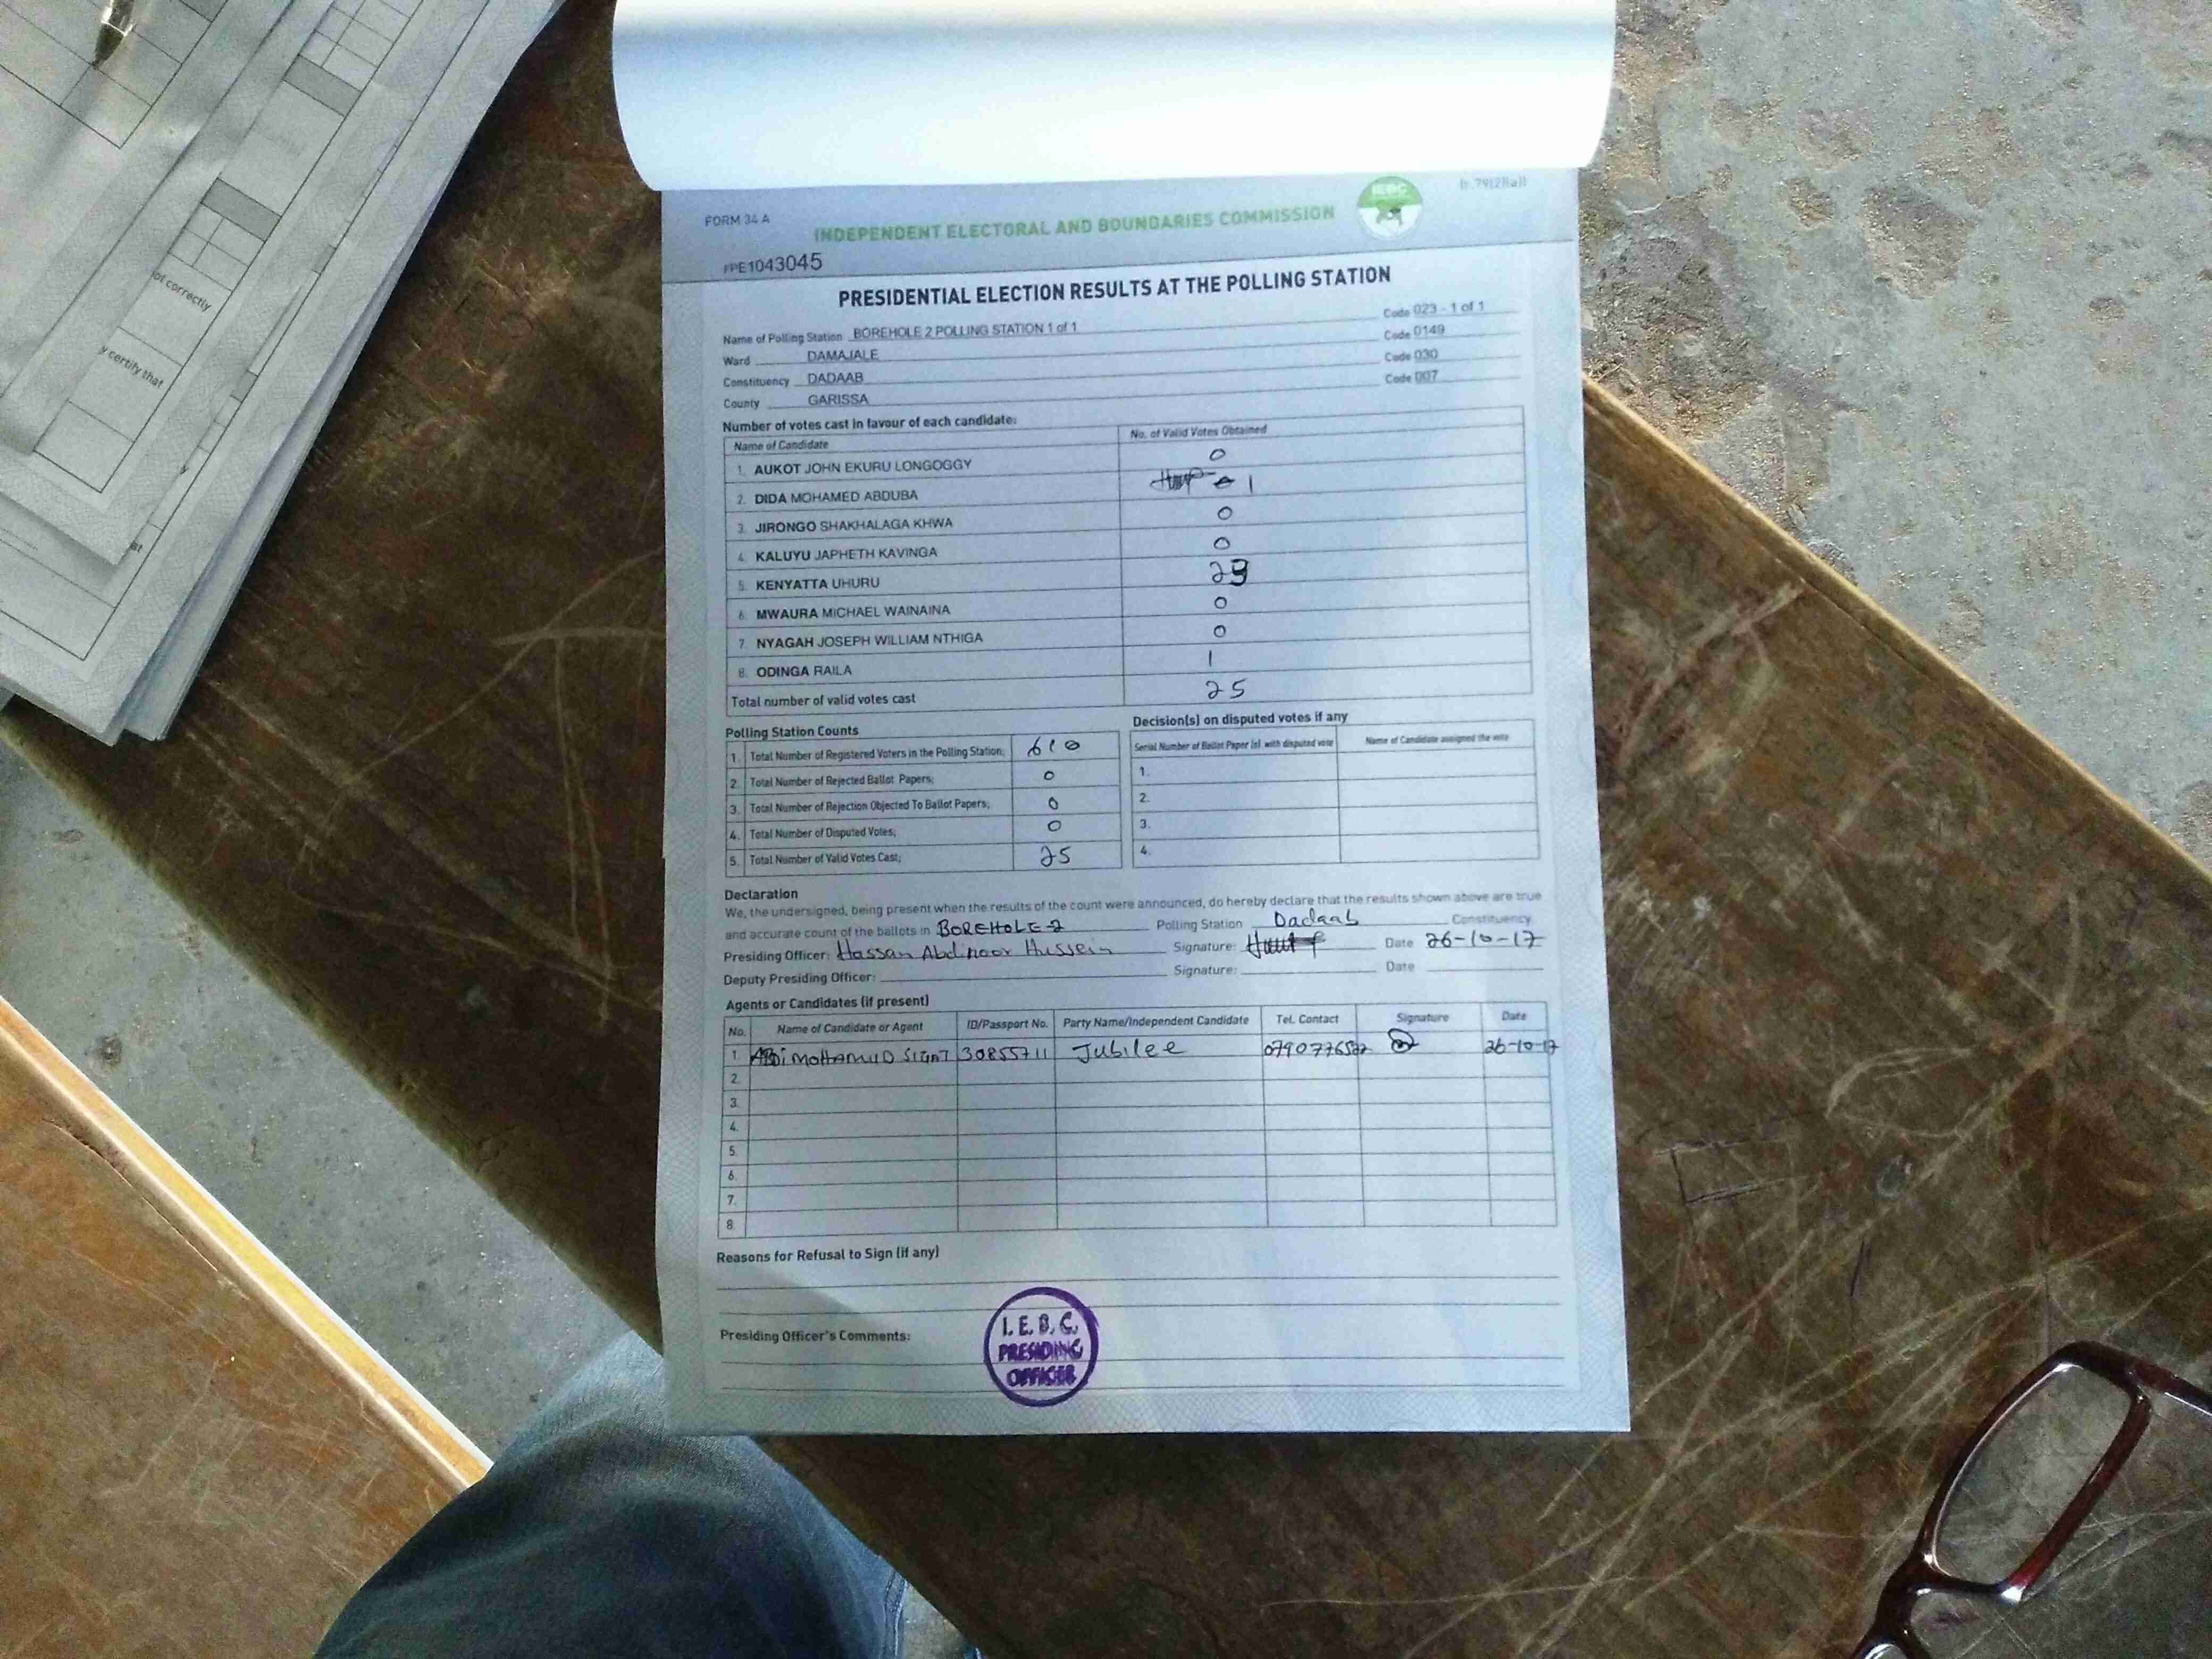 ot correctly
y certify that
at
FORM 34 A
INDEPENDENT ELECTORAL AND BOUNDARIES COMMISSION
IEBC
PE1043045
PRESIDENTIAL ELECTION RESULTS AT THE POLLING STATION
Name of Polling Station BOREHOLE 2 POLLING STATION 1 of 1 Code 023 - 1 of 1
Ward DAMAJALE Code 0149
Constituency DADAAB Code 030
County GARISSA Code 007
Number of votes cast in favour of each candidate:
Name of Candidate No. of Valid Votes Obtained
1. AUKOT JOHN EKURU LONGOGGY 0
2. DIDA MOHAMED ABDUBA 1
3. JIRONGO SHAKHALAGA KHWA 0
4. KALUYU JAPHETH KAVINGA 0
5. KENYATTA UHURU 23
6. MWAURA MICHAEL WAINAINA 0
7. NYAGAH JOSEPH WILLIAM NTHIGA 0
8. ODINGA RAILA 1
Total number of valid votes cast 25
Polling Station Counts
1. Total Number of Registered Voters in the Polling Station; 610
2. Total Number of Rejected Ballot Papers; 0
3. Total Number of Rejection Objected To Ballot Papers; 0
4. Total Number of Disputed Votes; 0
5. Total Number of Valid Votes Cast; 25
Decision(s) on disputed votes if any
Serial Number of Ballot Paper (s) with disputed vote Name of Candidate assigned the vote
1.
2.
3.
4.
Declaration
We, the undersigned, being present when the results of the count were announced, do hereby declare that the results shown above are true
and accurate count of the ballots in BOREHOLE-2 Polling Station Dadaab Constituency.
Presiding Officer: Hassan Abdinoor Hussein Signature: Date 26-10-17
Deputy Presiding Officer: Signature: Date
Agents or Candidates (if present)
No. Name of Candidate or Agent ID/Passport No. Party Name/Independent Candidate Tel. Contact Signature Date
1. ABDi MOHAMUD 30855711 Jubilee 26-10-17
2.
3.
4.
5.
6.
7.
8.
Reasons for Refusal to Sign (if any)
Presiding Officer's Comments:
I.E.B.C.
PRESIDING
OFFICER